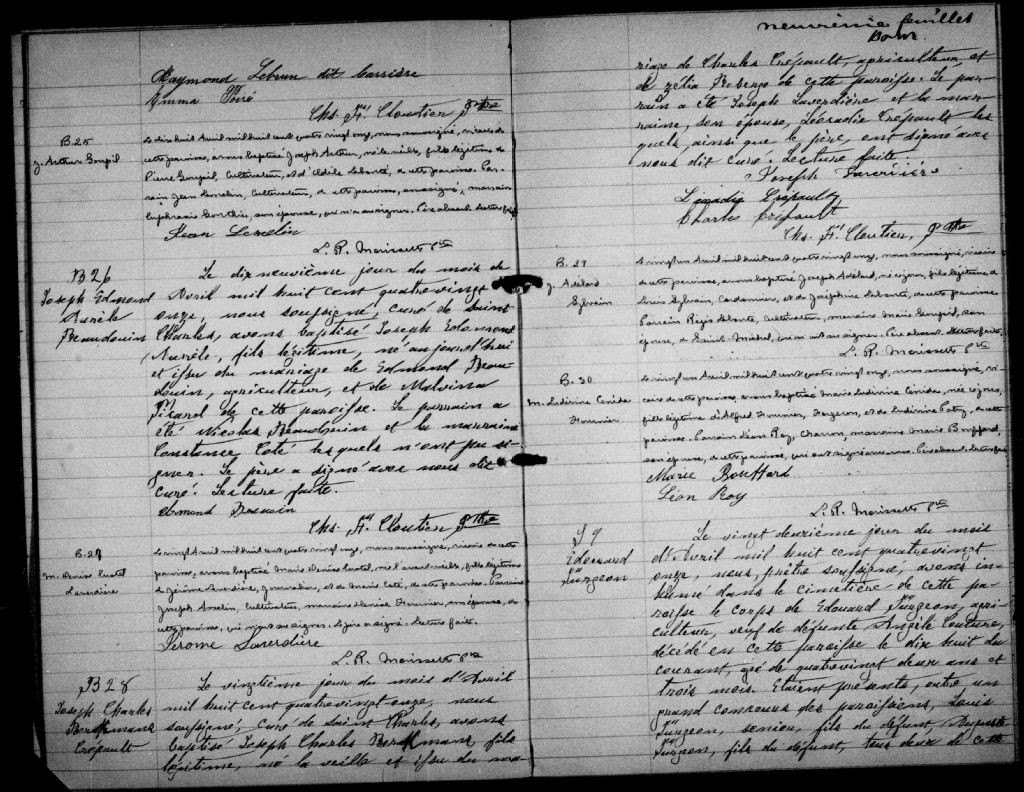 Raymond Lebrun dit Carrière
Emma Poiré
Chs. Fs. Cloutier Ptre
B. 25
J. Arthur Goupil
Le dix huit Avril mil huit cent quatre vingt onze, nous soussigné, vicaire de
cette paroisse, avons baptisé Joseph Arthur, né la veille, fils légitime de
Pierre Goupil, Cultivateur, et d'Adèle Labonté, de cette paroisse. Par-
rain Jean Lemelin, Cultivateur, de cette paroisse, soussigné, marraine
Euphrasie Gonthier, son épouse, qui n'a su signer. Père absent. Lecture faite
Jean Lemelin
L. R. Moisset Ptre
B 26
Joseph Edmond
Aurèle
Beaudouin
Le dix neuvième jour du mois de
Avril mil huit cent quatrevingt
onze, nous soussigné, curé de Saint
Charles, avons baptisé Joseph Edmond
Aurèle, fils légitime, né aujourd'hui
et issu du mariage de Edmond Beau-
douin, agriculteur, et de Malvina
Picard de cette paroisse. Le parrain a
été Nicolas Beaudouin et la marraine
Constance Coté lesquels n'ont pu si-
gner. Le père a signé avec nous dit
curé. Lecture faite.
Edmond
Chs. Fs. Cloutier Ptre
B. 27
M. Denise
Le vingt Avril mil huit cent quatre vingt onze, nous soussigné, vicaire de cette
paroisse, avons baptisé Marie Denise née l'avant-veille, fille légitime
de Jérôme Journalier, et de Marie Coté, de cette paroisse. Parrain
Joseph Cultivateur, marraine Denise Fournier, son épouse, de
cette paroisse, qui n'ont su signer. Le père a signé. Lecture faite.
Jérome Laverdière
L. R. Moisset Ptre
B 28
Joseph Charles
Berkmans
Crépault
Le vingtième jour du mois d'Avril
mil huit cent quatrevingt onze, nous
soussigné, curé de Saint Charles, avons
baptisé Joseph Charles Berkmans, fils
légitime, né la veille et issu du ma-
neuvième feuillet
riage de Charles Crépault, agriculteur, et
de Zélia Roberge de cette paroisse. Le par-
rain a été Joseph Laverdière et la mar-
raine, son épouse, Léocadie Crépault les
quels, ainsi que le père, ont signé avec
nous dit curé. Lecture faite
Joseph Laverdière
Léocadie Crépault
Charles Crépault
Chs. Fs. Cloutier, Ptre
B. 29
J. Adélard
Sylvain
Le vingt un Avril mil huit cent quatre vingt onze, nous soussigné, vicaire
de cette paroisse, avons baptisé Joseph Adélard, né ce jour, fils légitime de
Louis Sylvain, Cordonnier, et de Joséphine Labonté, de cette paroisse.
Parrain Régis Labonté, Cultivateur, marraine Marie Goupil, son
épouse, de Saint Michel, qui n'ont su signer. Père absent. Lecture faite.
L. R. Moisset Ptre
B. 30
M. Ludivine
Fournier
Le vingt un Avril mil huit cent quatre vingt onze, nous soussigné, vi-
caire de cette paroisse, avons baptisé Marie Ludivine née ce jour,
fille légitime d'Alfred Fournier, Forgeron, et de Ludivine de cette
paroisse. Parrain Léon Roy, Charron, marraine Marie Bouffard,
son épouse, de cette paroisse, qui ont signé avec nous. Père absent. Lecture faite
Marie Bouffard
Léon Roy
L. R. Moisset Ptre
S 9
Edouard
Turgeon
Le vingt deuxième jour du mois
d'Avril mil huit cent quatrevingt
onze, nous, prêtre soussigné, avons in-
humé dans le cimetière de cette pa-
roisse le corps de Edouard Turgeon, agri-
culteur, veuf de défunte Angèle Couture,
décédé en cette paroisse le dix huit du
courant, agé de quatrevingt deux ans et
trois mois. Etaient présents, outre un
grand concours des paroissiens, Louis
Turgeon, senior, fils du défunt, Auguste
Turgeon, fils du défunt, tous deux de cette